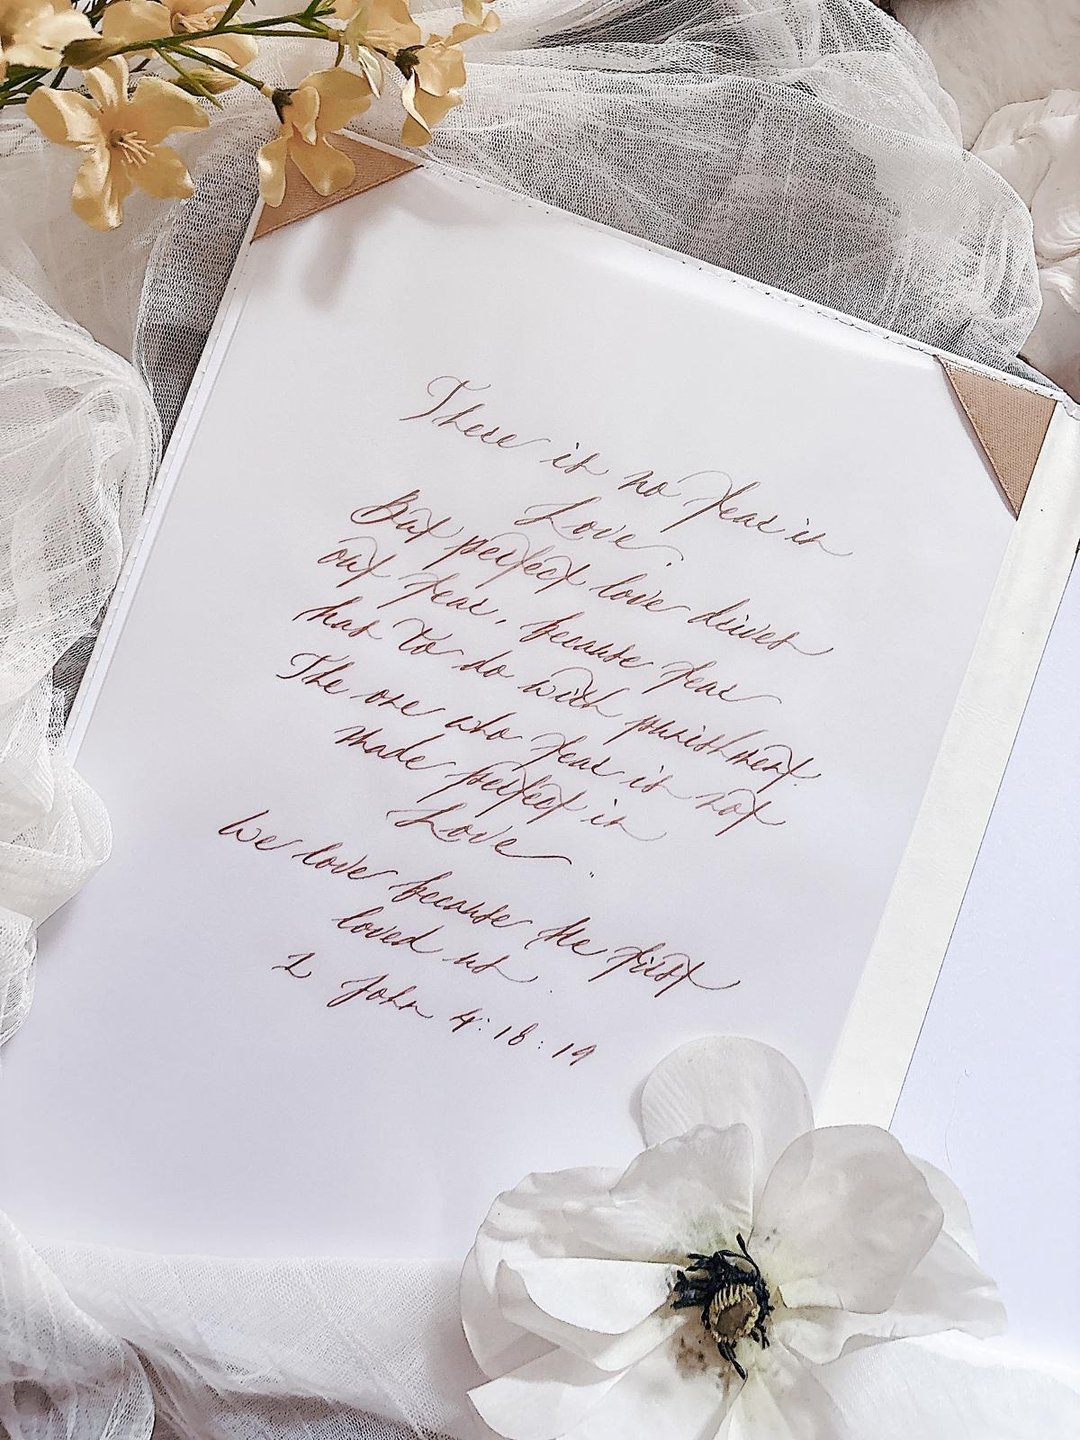 There is no fear in
Love.
But perfect love drives
out fear, because fear
has to do with punishment.
The one who fear is not
made perfect in
Love."
We love because He first
loved us.
1 John 4:18:19